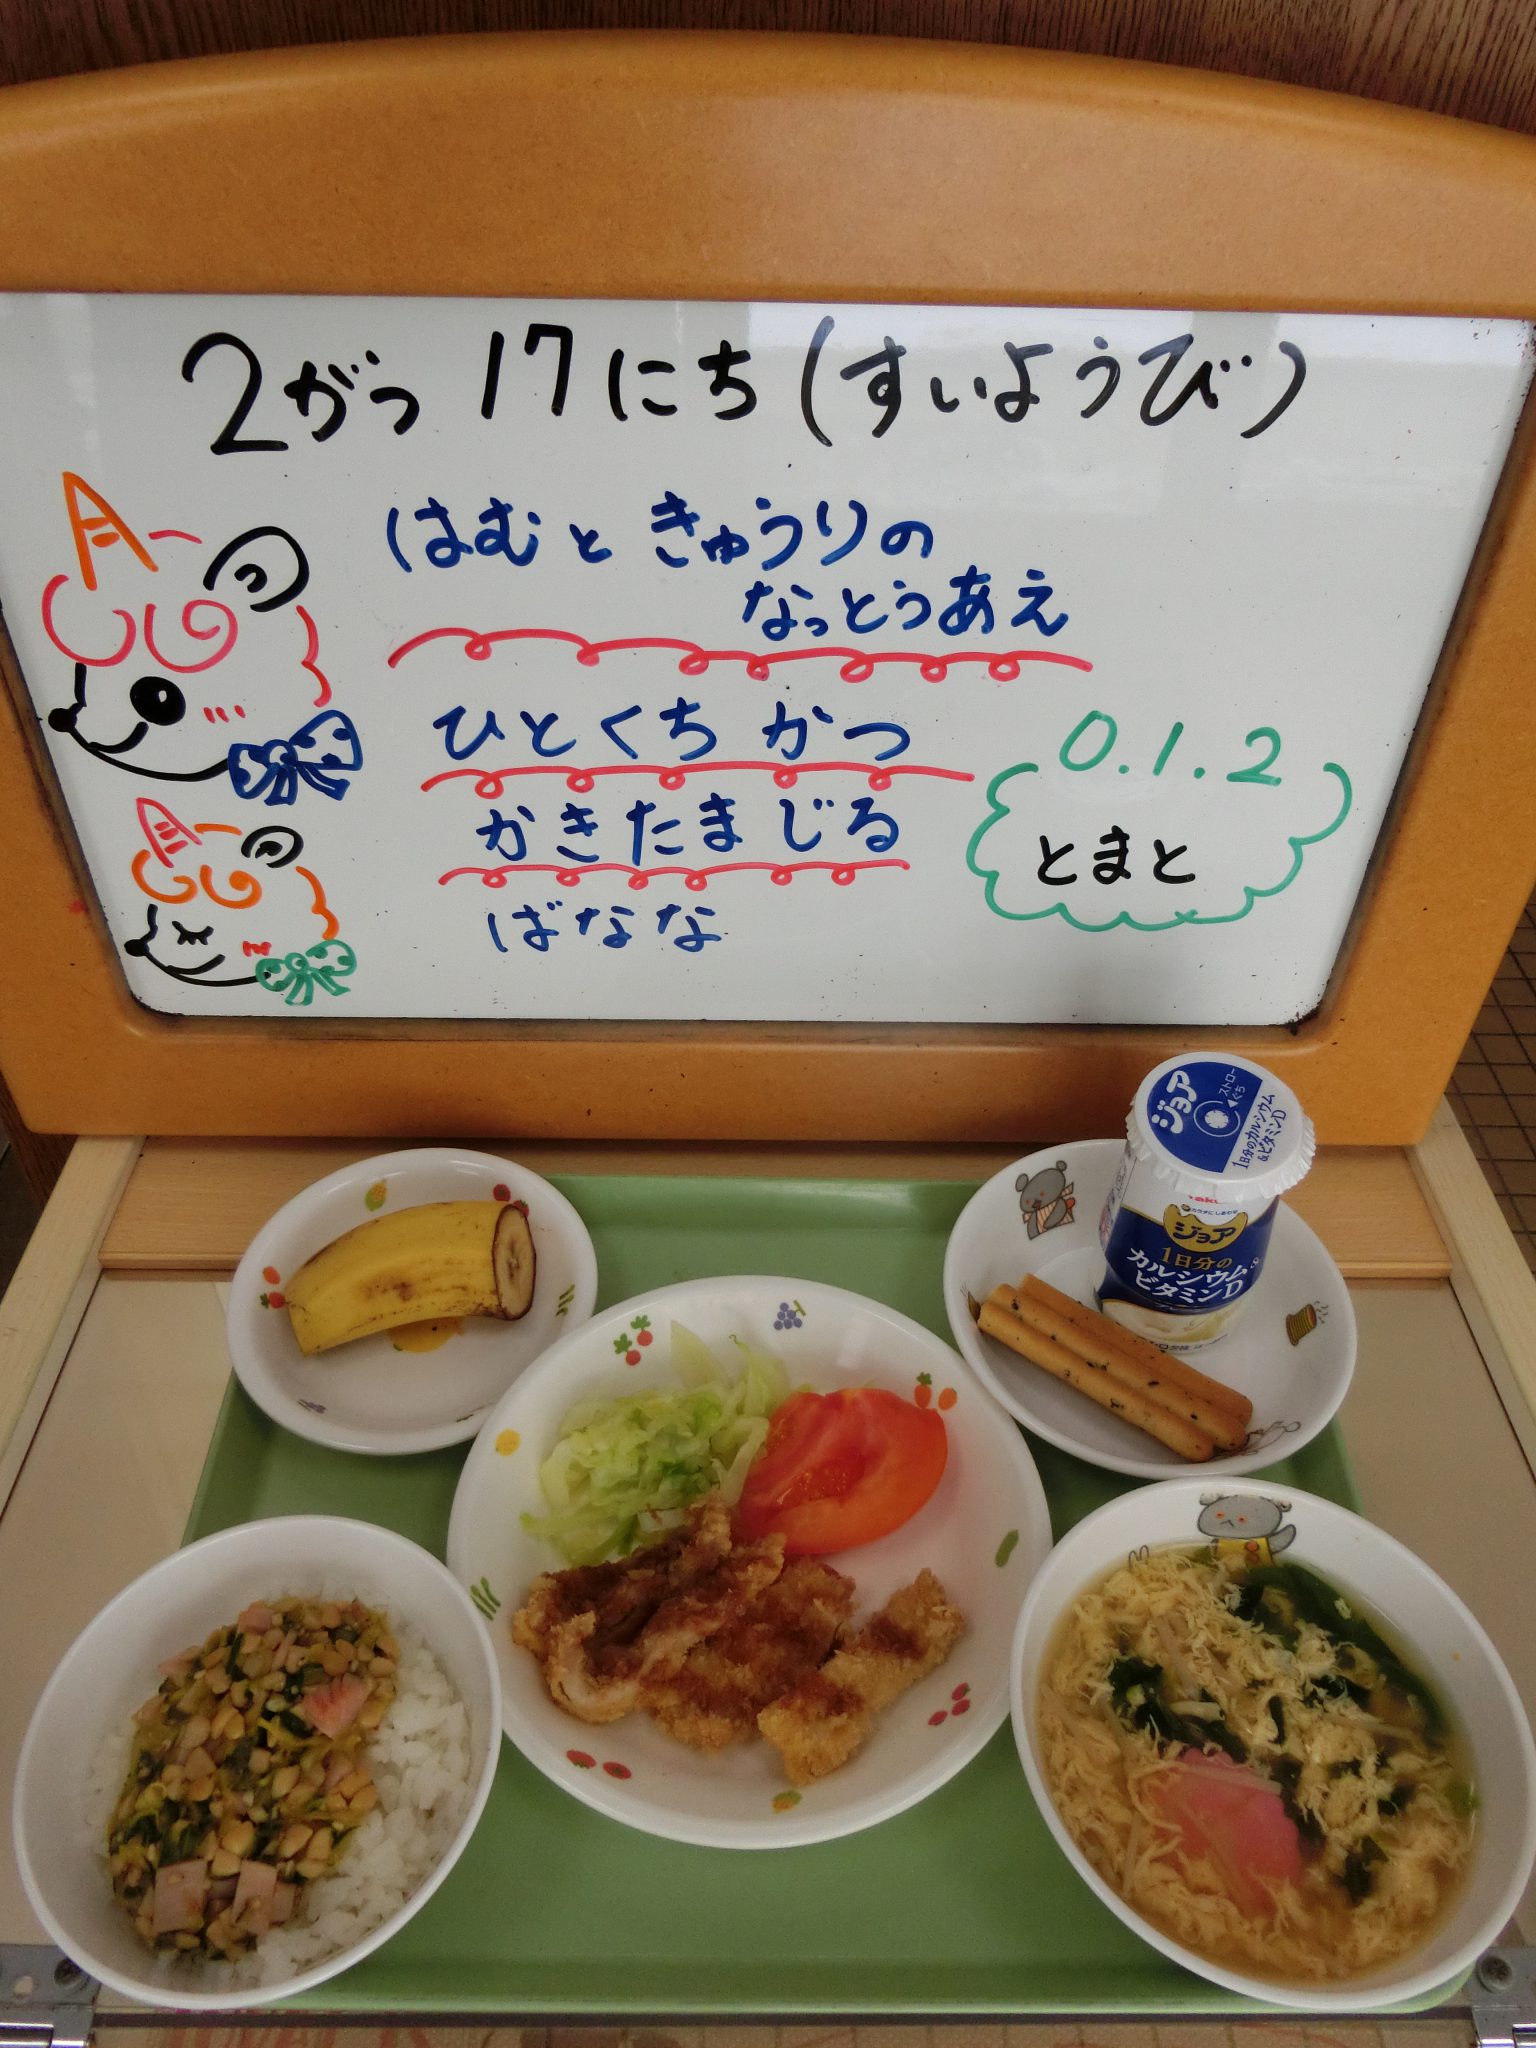 2がつ 17にち(すいようび)
はむと きゅうりの
なっとうあえ
ひとくち かつ
かきたま じる
ばなな
0.1.2
とまと
ジョア
ストロー
ぐち
1日分のカルシウム
&ビタミンD
ジョア
1日分の
カルシウム&
ビタミンD